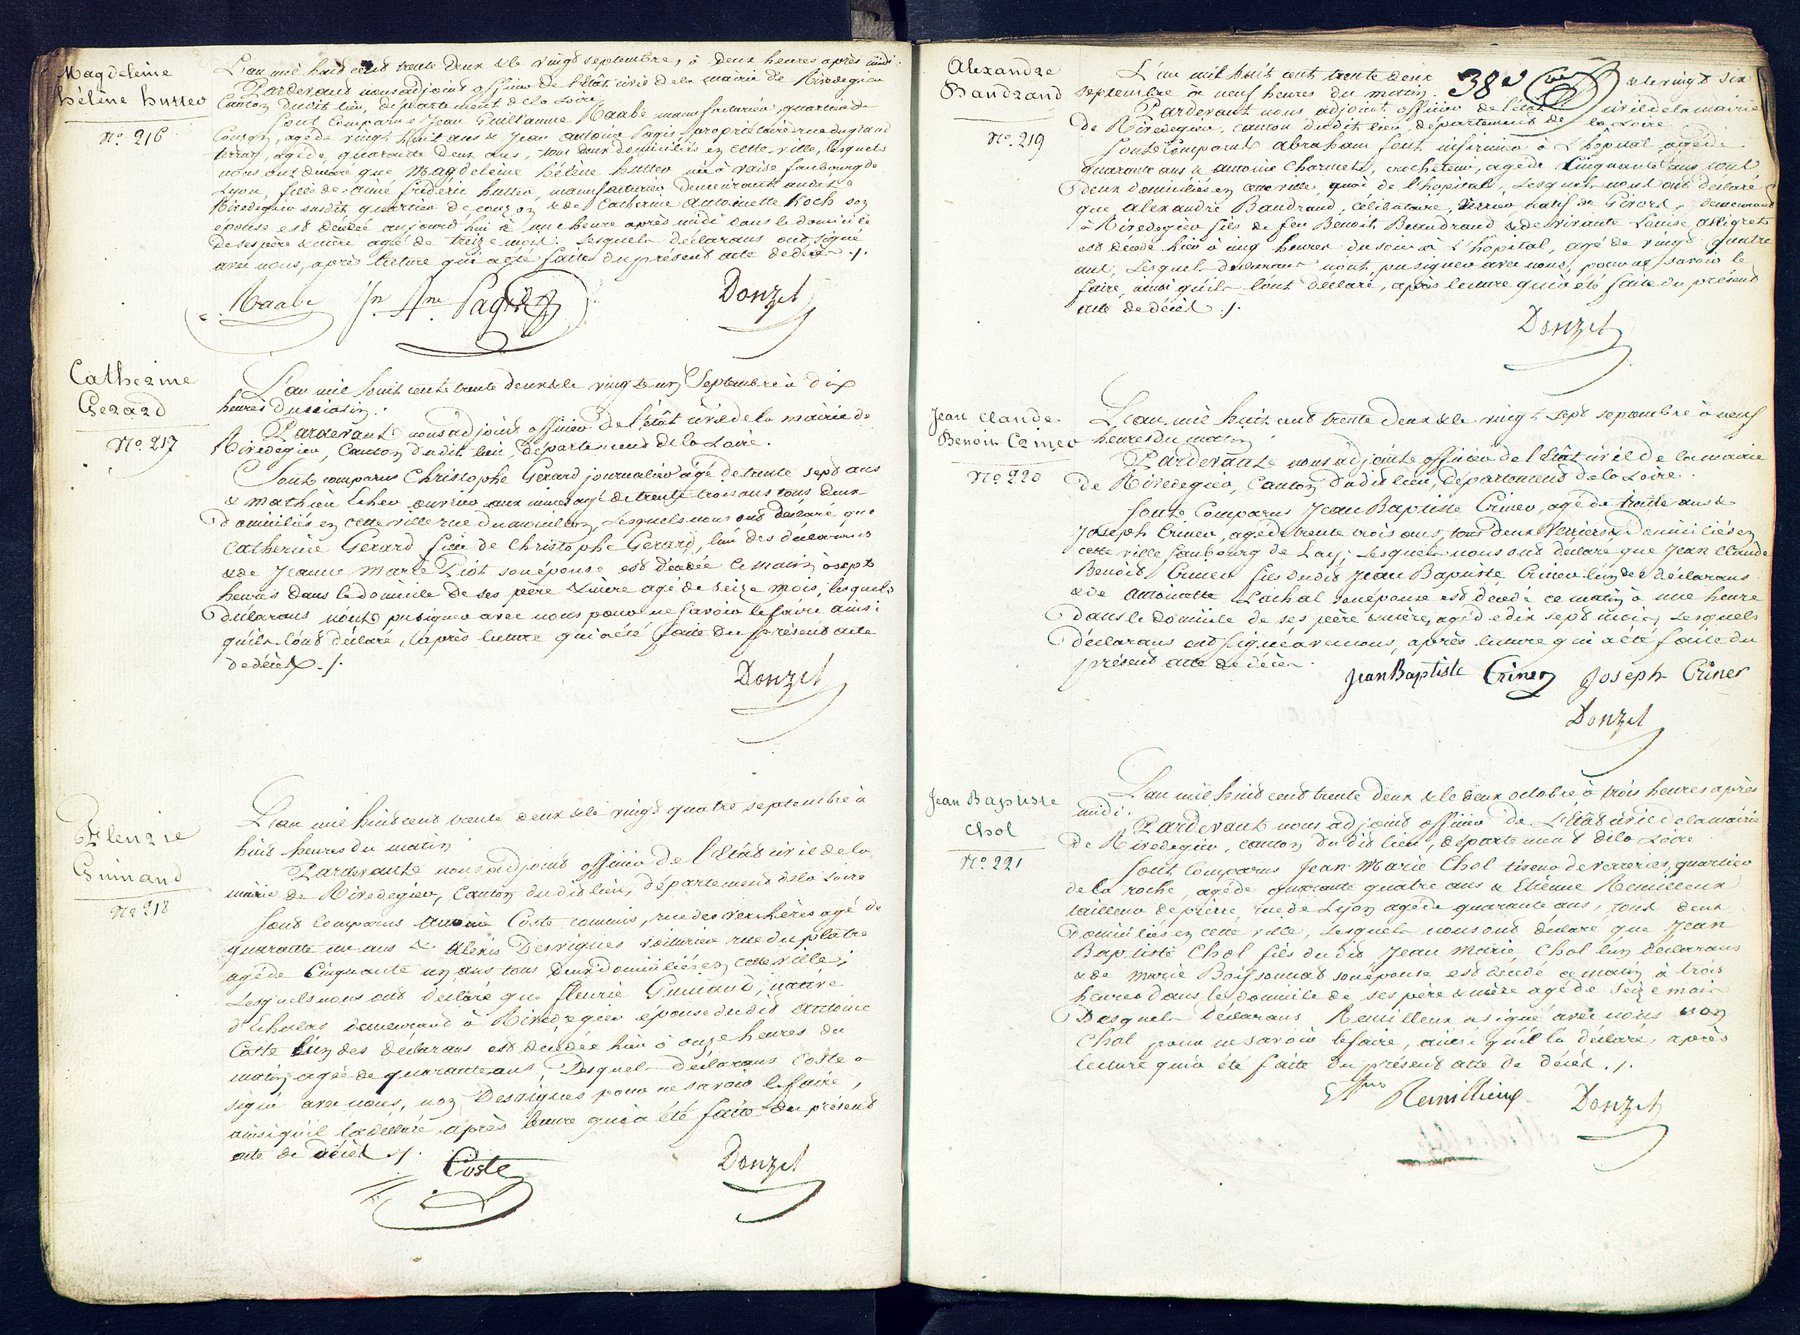 Magdeleine
hélène hutter
N.o 216
L'an mil huit cent trente deux & le vingt septembre, à deux heures après midi.
Pardevant nous adjoint officier de l'état civil de la mairie de Rivedegier
Canton dudit lieu, département de la Loire
Sont comparus Jean Guillaume Raabe manufacturier quartier de
Couzon, agé de vingt huit ans & Jean Antoine Pagis propriétaire rue du grand
terray, agé de quarante deux ans, tous deux domiciliés en cette ville, lesquels
nous ont déclaré que Magdeleine hélène hutter née à Vaise faubourg de
Lyon, fille de aimé frédéric hutter manufacturier demeurant audit
Rivedegier susdit quartier de couzon & de Catherine Antoinette Koch son
épouse est décédée aujourd'hui à une heure après midi dans le domicile
de ses père & mère agé de treize mois. Lesquels déclarans ont signé
avec nous, après lecture qui a été faite du présent acte de décès ./.
Raabe Jn. Ane. Pagis Donzel
Catherine
Gerard
N.o 217
L'an mil huit cent trente deux & le vingt un Septembre à dix
heures du matin.
Pardevant nous adjoint officier de l'état civil de la mairie de
Rivedegier, Canton dudit lieu, département de la Loire.
Sont comparus Christophe Gérard journalier agé de trente sept ans
& Mathieu ouvrier aux mines agé de trente trois ans tous deux
domiciliés en cette ville rue du moulin, Lesquels nous ont déclaré que
Catherine Gerard fille de Christophe Gerard, l'un des déclarans
& de Jeanne Marie Piot son épouse est décédée ce matin à sept
heures dans le domicile de ses père & mère agé de seize mois, lesquels
déclarans n'ont pu signer avec nous pour ne savoir le faire ainsi
qu'ils l'ont déclaré, après lecture qui a été faite du présent acte
de décès ./.
Donzel
Fleurie
Guinand
N.o 218
L'an mil huit cent trente deux & le vingt quatre septembre à
huit heures du matin
Pardevant nous adjoint officier de l'Etat civil de la
mairie de Rivedegier, Canton dudit lieu, département de la Loire
Sont comparus Antoine Coste commis, rue des Verchères agé de
quarante un ans & Alexis Desvignes voiturier rue du plâtre
agé de Cinquante un ans tous deux domiciliés en cette ville,
Lesquels nous ont déclaré que fleurie Guinand, native
d'Echalas demeurant à Rivedegier épouse dudit Antoine
Coste l'un des déclarans est décédée hier à onze heures du
matin agée de quarante ans Desquels déclarans Coste a
signé avec nous, non Desvignes pour ne savoir le faire,
ainsi qu'il l'a déclaré après lecture qui a été faite du présent
acte de décès ./.
Coste Donzel
Alexandre
Bandrand
N.o 219
38e
L'an mil huit cent trente deux & le vingt six
septembre à neuf heures du matin.
Pardevant nous adjoint officier de l'état civil de la mairie
de Rivedegier, canton dudit lieu, département de la Loire
Sont Comparus Abraham font infirmier à l'hôpital, agé de
quarante ans & antoine Charmet, crocheteur, agé de Cinquante ans tous
deux domiciliés en cette ville, quai de l'hôpital, Lesquels nous ont déclaré
que Alexandre Bandrand, célibataire, Verrier natif de Givors, demeurant
à Rivedegier fils de feu Benoît Bandrand & de vivante Louise
est décédé hier à cinq heures du soir à l'hôpital, agé de vingt quatre
ans, Lesquels déclarans n'ont pu signer avec nous, pour ne savoir le
faire, ainsi qu'ils l'ont déclaré, après lecture qui a été faite du présent
acte de décès ./.
Donzel
Jean Claude
Benoit Criner
N.o 220
L'an mil huit cent trente deux & le vingt sept septembre à neuf
heures du matin
Pardevant nous adjoint officier de l'Etat civil de la mairie
de Rivedegier, Canton dudit lieu, département de la Loire.
Sont Comparus Jean Baptiste Criner, agé de trente ans &
Joseph Criner, agé de trente trois ans, tous deux Verriers & domiciliés en
cette ville faubourg de Lay; Lesquels nous ont déclaré que Jean Claude
Benoit Criner fils dudit Jean Baptiste Criner l'un des déclarans
& de Antoinette Lachal son épouse est décédé ce matin à une heure
dans le domicile de ses père & mère, agé de dix sept mois, Lesquels
déclarans ont signé avec nous, après lecture qui a été faite du
présent acte de décès.
Jean Baptiste Criner Joseph Criner
Donzel
Jean Baptiste
Chol
N.o 221
L'an mil huit cent trente deux & le deux octobre à trois heures après
midi.
Pardevant nous adjoint officier de l'Etat civil de la mairie
de Rivedegier, canton dudit lieu, département de la Loire
Sont Comparus Jean Marie Chol tiseur de verreries, quartier
de la roche, agé de quarante quatre ans & Etienne Remilleux
tailleur de pierre, rue de Lyon agé de quarante ans, tous deux
domiciliés en cette ville, Lesquels nous ont déclaré que Jean
Baptiste Chol fils dudit Jean Marie Chol l'un déclarans
& de Marie Boissonnat son épouse est décédé ce matin à trois
heures dans le domicile de ses père & mère agé de seize mois
Desquels déclarans Remilleux a signé avec nous non
Chol pour ne savoir le faire, ainsi qu'il l'a déclaré, après
lecture qui a été faite du présent acte de décès ./.
Remillieux Donzel